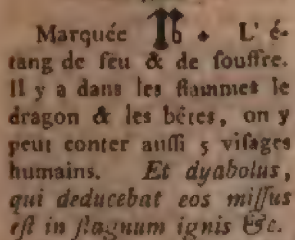 Marquée 𝕹 ✦ L' é-
tang de feu & de ſouffre.
Il y a dans les flammes le
dragon & les bêtes, on y
peut conter auſſi 5 viſages
humains. Et dyabolus,
qui deducebat eos miſſus
eſt in ſtagnum ignis &c.